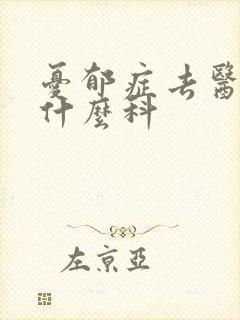 憂郁症去醫
什麼科
左京亞